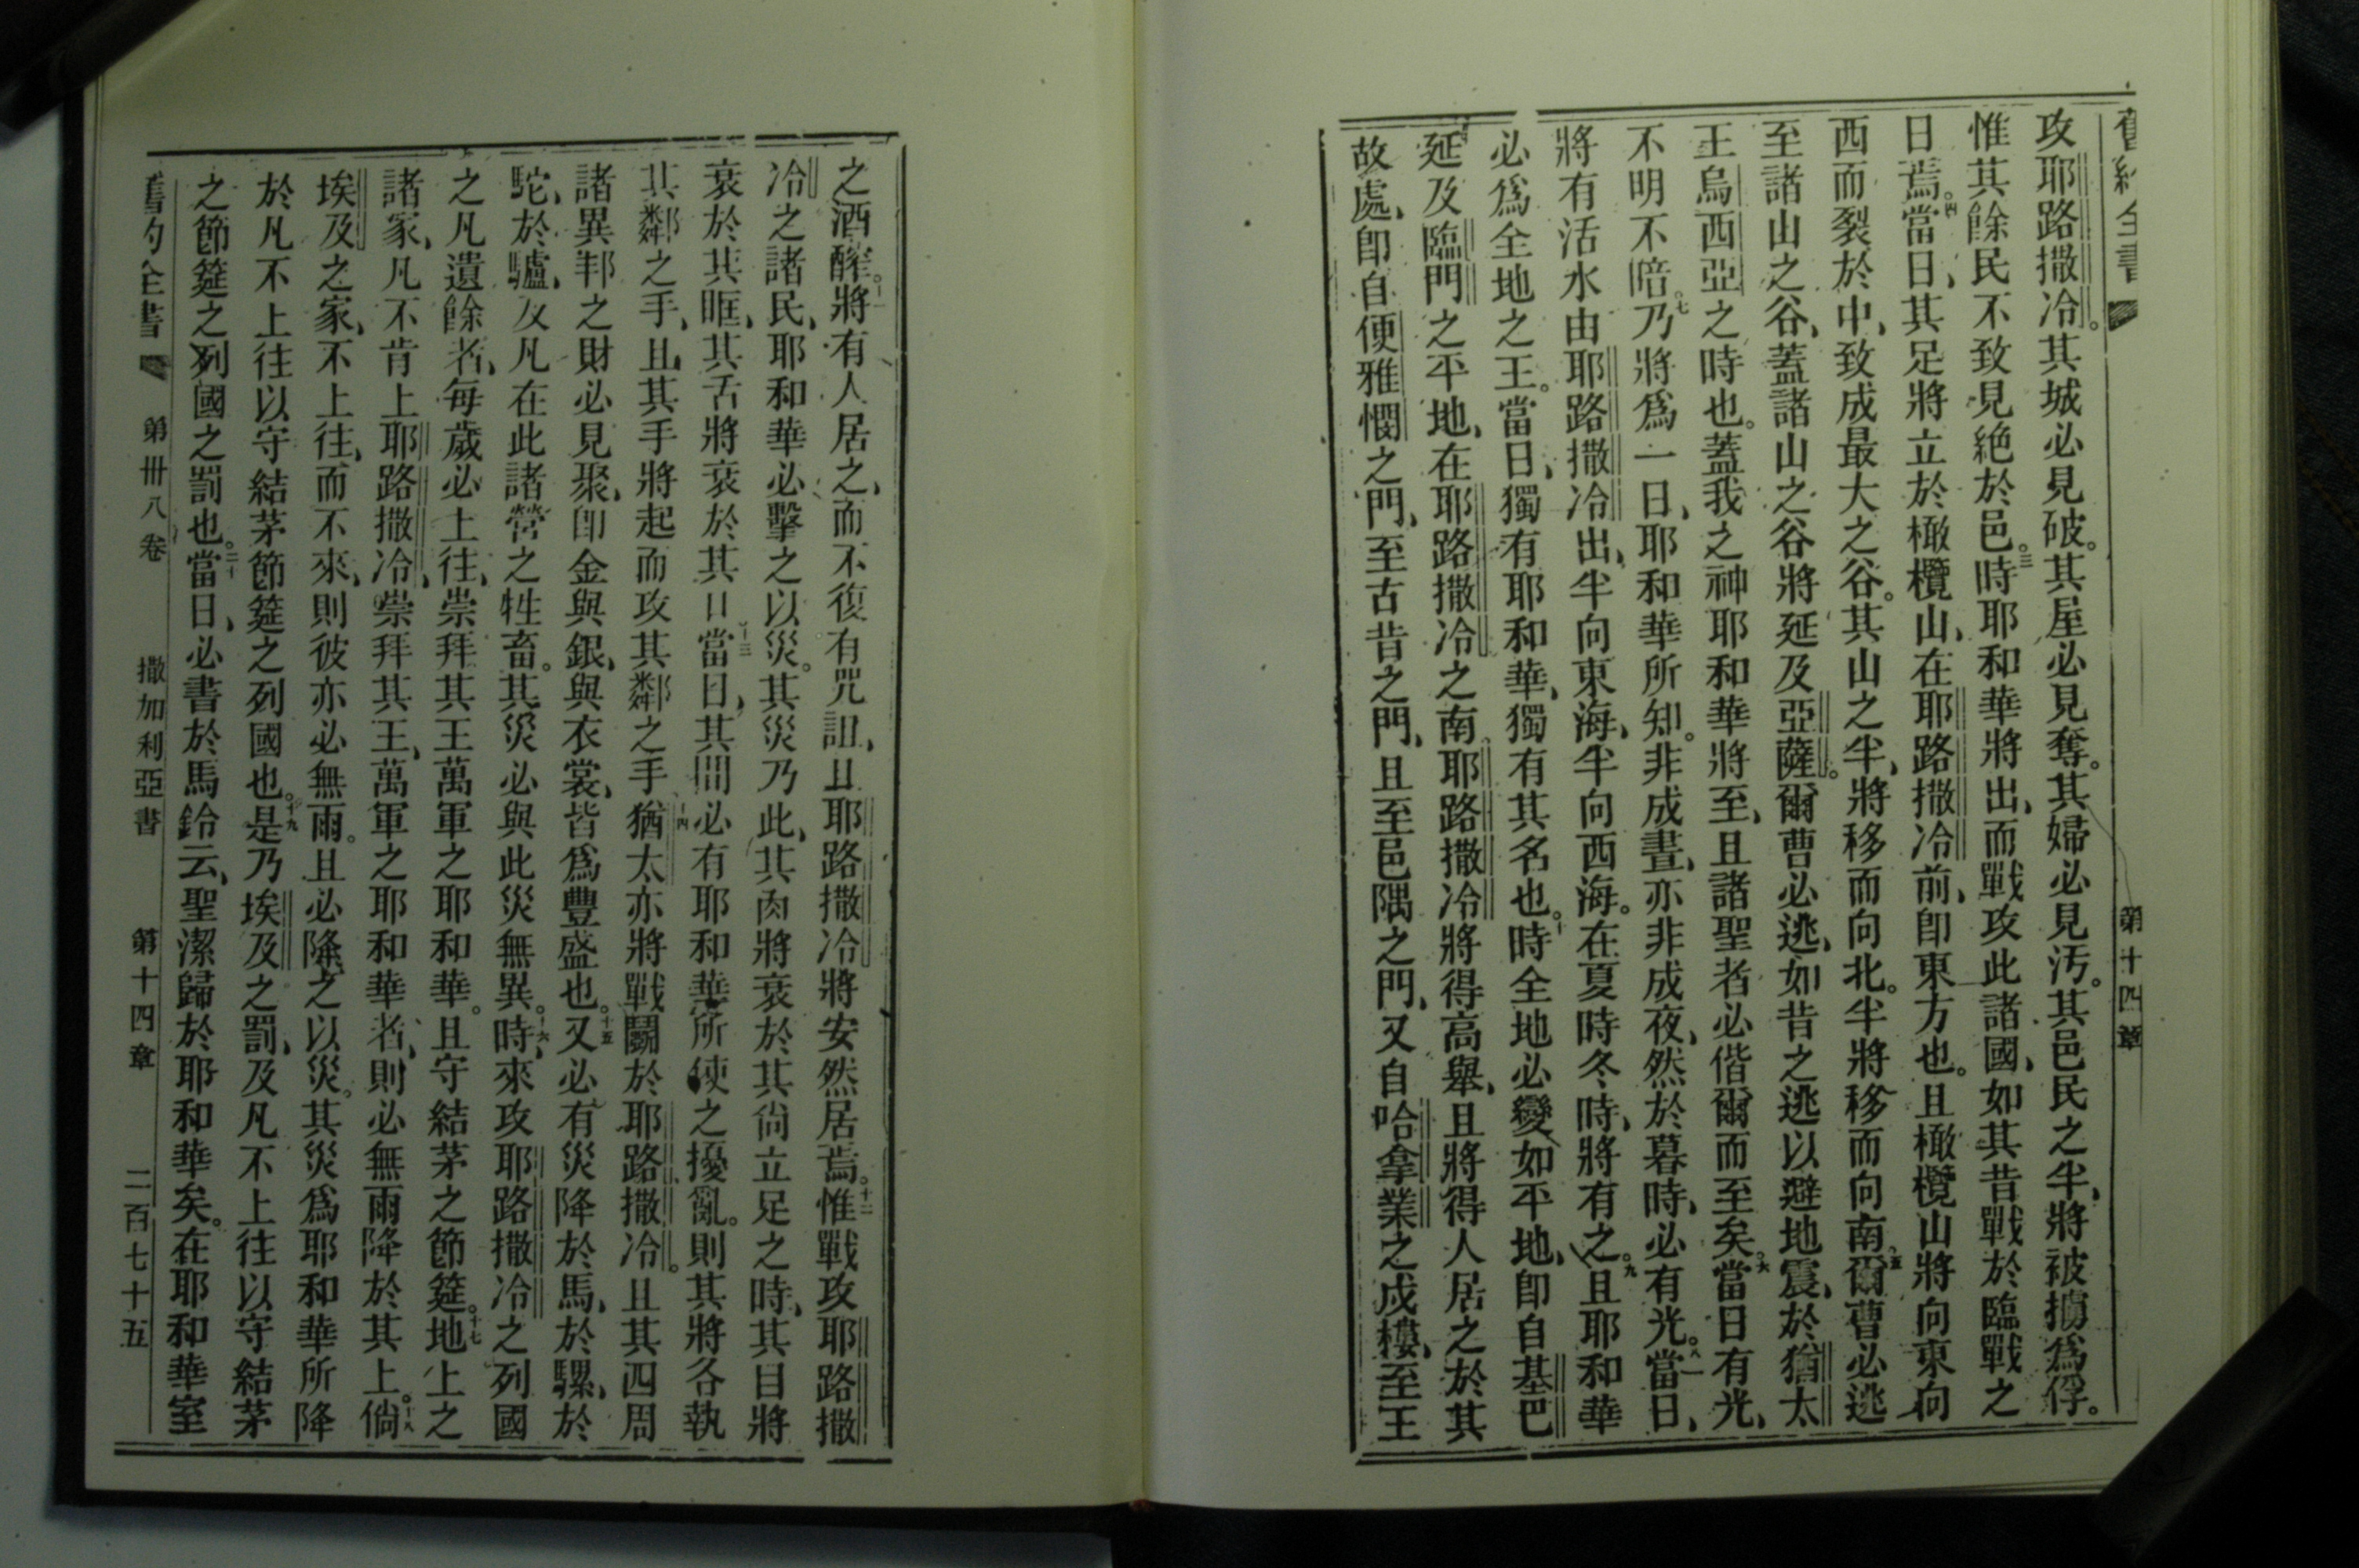 舊約全書 第十四章
攻耶路撒冷。其城必見破。其屋必見奪。其婦必見汚。其邑民之半、將被擄爲俘。
惟其餘民不致見絕於邑。三時耶和華將出、而戰攻此諸國、如其昔戰於臨戰之
日焉。四當日、其足將立於橄欖山、在耶路撒冷前、卽東方也。且橄欖山將向東向
西而裂於中、致成最大之谷。其山之半、將移而向北。半將移而向南。五爾曹必逃
至諸山之谷、蓋諸山之谷將延及亞薩。爾曹必逃、如昔之逃以避地震、於猶太
王烏西亞之時也。蓋我之神耶和華將至、且諸聖者必偕爾而至矣。六當日有光、
不明不暗。七乃將爲一日、耶和華所知。非成晝、亦非成夜、然於暮時、必有光。八當日、
將有活水由耶路撒冷出、半向東海、半向西海。在夏時冬時、將有之。九且耶和華
必爲全地之王。當日、獨有耶和華、獨有其名也。十時全地必變如平地、卽自基巴
延及臨門之平地、在耶路撒冷之南。耶路撒冷將得高舉、且將得人居之於其
故處、卽自便雅憫之門、至古昔之門、且至邑隅之門、又自哈拿業之戍樓、至王
之酒醡。十一將有人居之、而不復有咒詛、且耶路撒冷將安然居焉。十二惟戰攻耶路撒
冷之諸民、耶和華必擊之以災。其災乃此、其肉將衰於其尙立足之時、其目將
衰於其眶、其舌將衰於其口十三當日、其間必有耶和華所使之擾亂。則其將各執
其鄰之手、且其手將起而攻其鄰之手十四猶太亦將戰鬭於耶路撒冷。且其四周
諸異邦之財必見聚、卽金與銀、與衣裳、皆爲豐盛也。十五又必有災降於馬、於騾、於
駝、於驢、及凡在此諸營之牲畜。其災必與此災無異。十六時、來攻耶路撒冷之列國
之凡遺餘者、每歲必上往、崇拜其王萬軍之耶和華。且守結茅之節筵。十七地上之
諸家、凡不肯上耶路撒冷、崇拜其王、萬軍之耶和華者、則必無雨降於其上。十八倘
埃及之家、不上往、而不來、則彼亦必無雨。且必降之以災。其災爲耶和華所降
於凡不上往以守結茅節筵之列國也。十九是乃埃及之罰、及凡不上往以守結茅
之節筵之列國之罰也。二十當日、必書於馬鈴云、聖潔歸於耶和華矣。在耶和華室
舊約全書 第卅八卷 撒加利亞書 第十四章 二百七十五